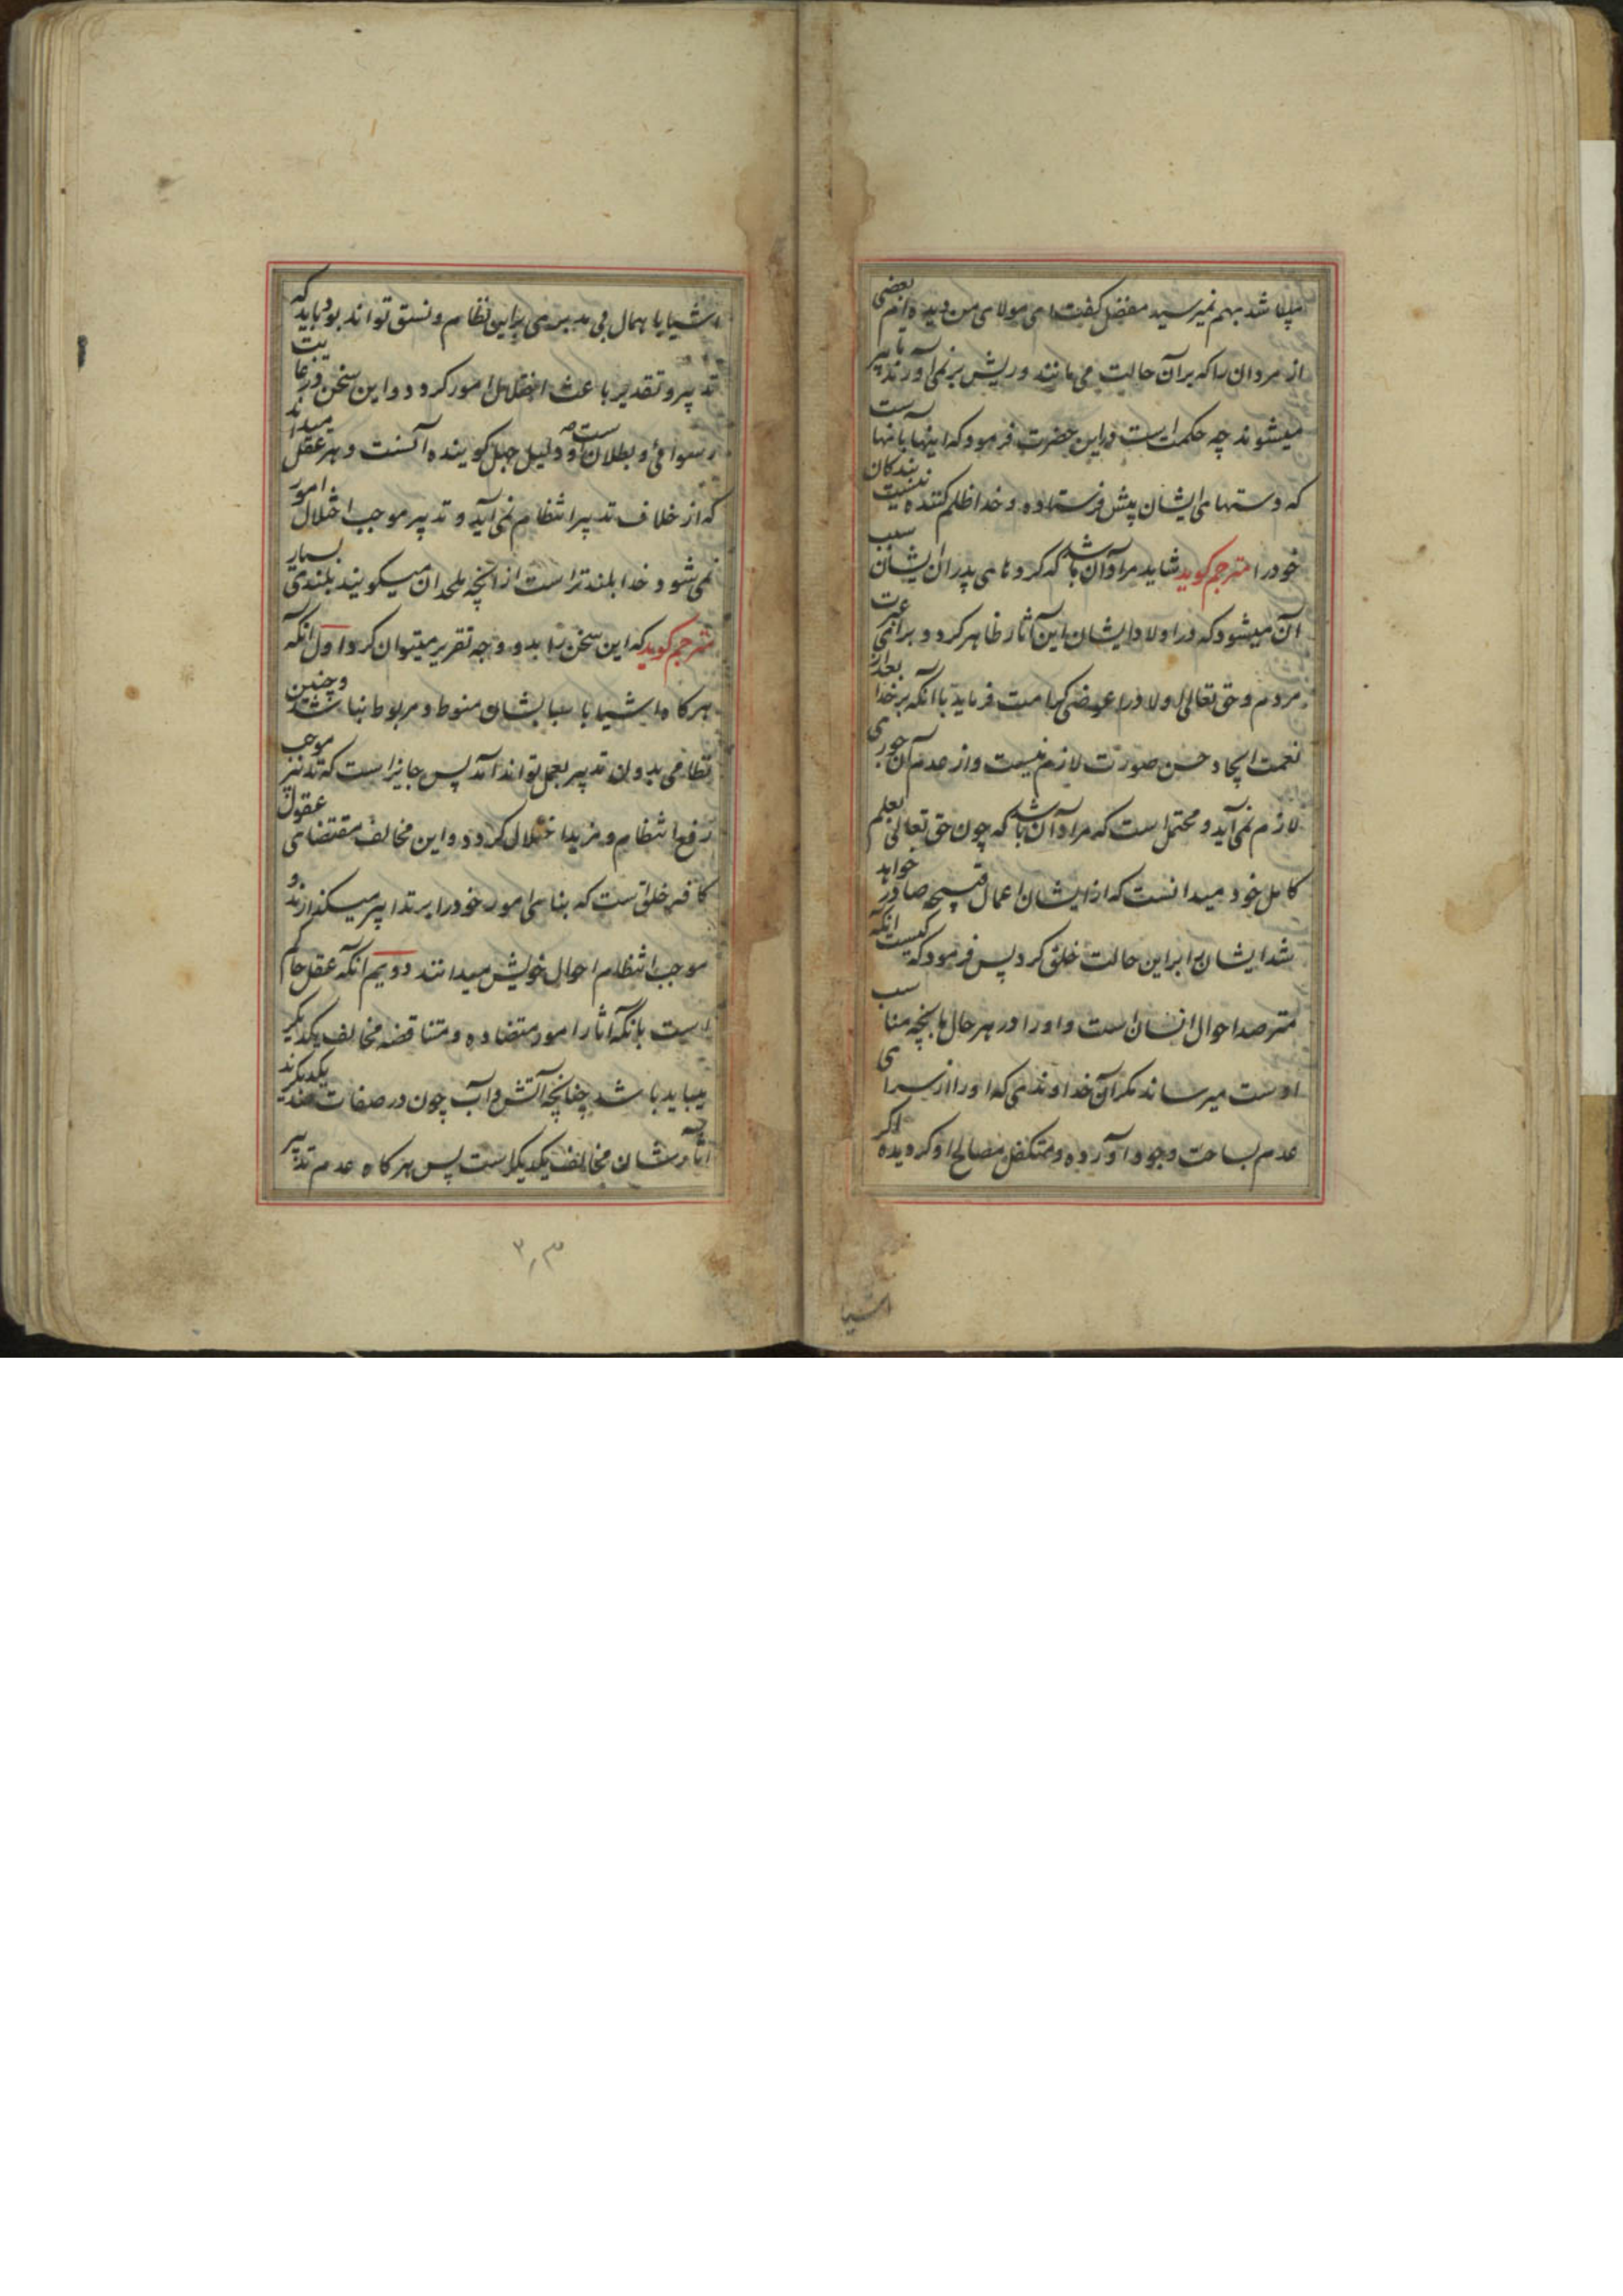 میباشد بهم نمیرسید مفضل گفت ای مولای من دیده‌ام بعضی
از مردان را که بر آن حالت می‌مانند و ریش بر نمی‌آورند تا پیر
میشوند چه حکمت است در این حضرت فرمود که اینها بآنهاست
که دستهای ایشان پیش فرستاده و خدا ظلم کننده نیست بندکان
خود را مترجم کوید شاید مراد آن باشد که کرد‌های پدران ایشان سبب
آن میشود که در اولاد ایشان این آثار ظاهر کردد برای عبرت
مردم و حق تعالی اولاد را عوضی کرامت فرماید با آنکه بر خدا بعد از
نعمت ایجاد حسن صورت لازم نیست و از عدم آن جوری
لازم نمی‌آید و محتمل است که مراد آن باشد که چون حق تعالی بعلم
کامل خود میدانست که از ایشان اعمال قبیحه صادر خواهد
شد ایشان را بر این حالت خلق کرد پس فرمود که کیست آنکه
مترصد احوال انسان است و او را در هر حال بآنچه مناسب
اوست میرساند مکر آن خداوندی که او را از سرای
عدم بساحت وجود آورده و متکفل مصالح او کردیده اکر
اشیا
اشیا با همال بی مدبری براین نظام و نسق تواند بود باید که
تدبیر و تقدیر باعث اختلال امور کردد و این سخن در غایت
رسوائی و بطلان است و دلیل جهل کوینده آنست و هر عقل میداند
که از خلاف تدبیر انتظام نمی‌آید و تدبیر موجب اختلال امور
نمی‌شود و خدا بلندتر است از آنچه ملحدان میکویند بلندی بسیار
مترجم کوید که این سخن را بدو وجه تقریر میتوان کرد اول آنکه
هرکاه اشیا باسبابشان منوط و مربوط نباشند و چنین
نظامی بدون تدبیر بعمل تواند آمد پس جایز است که تدبیر موجب
رفع انتظام و مزید اختلال کردد و این مخالف مقتضای عقول
کافه خلق است که بنای امور خود را بر تدابیر میکذارند و
موجب انتظام احوال خویش میدانند دویم آنکه عقل حاکم
است بآنکه آثار امور متضاده و متناقضه مخالف یکدیکر
میباید باشد چنانچه آتش و آب چون در صفات ضد یکدیکرند
آثارشان مخالف یکدیکر است پس هرکاه عدم تدبیر